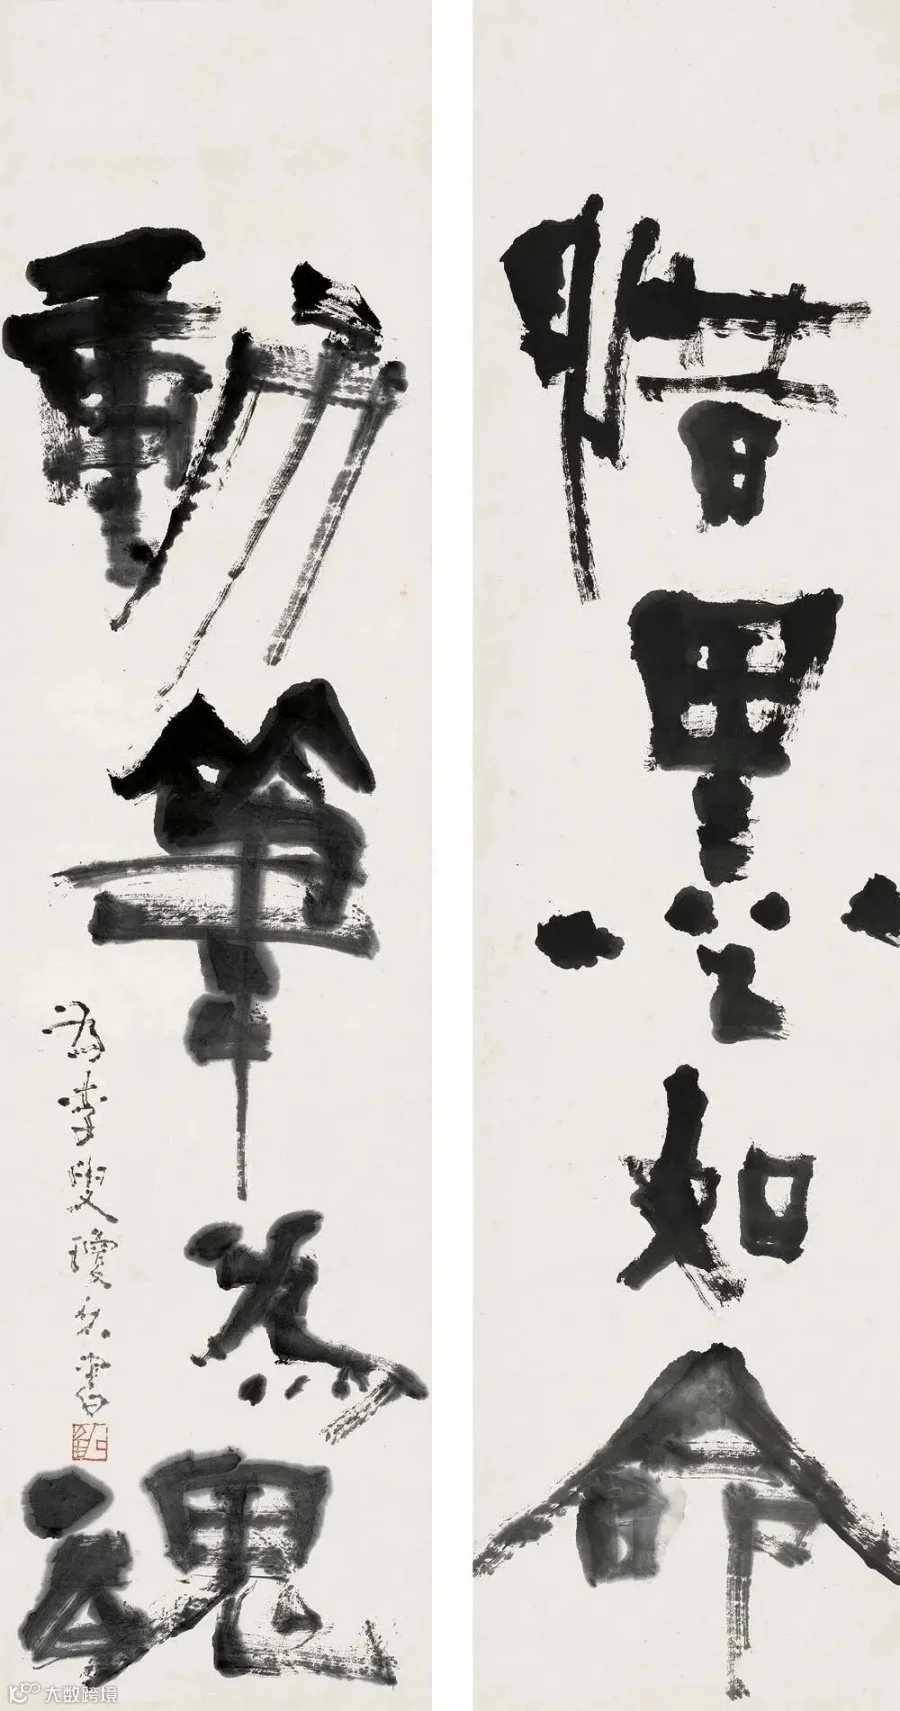 惜墨如命
動筆為魂
為李叟瓊書
大数跨境